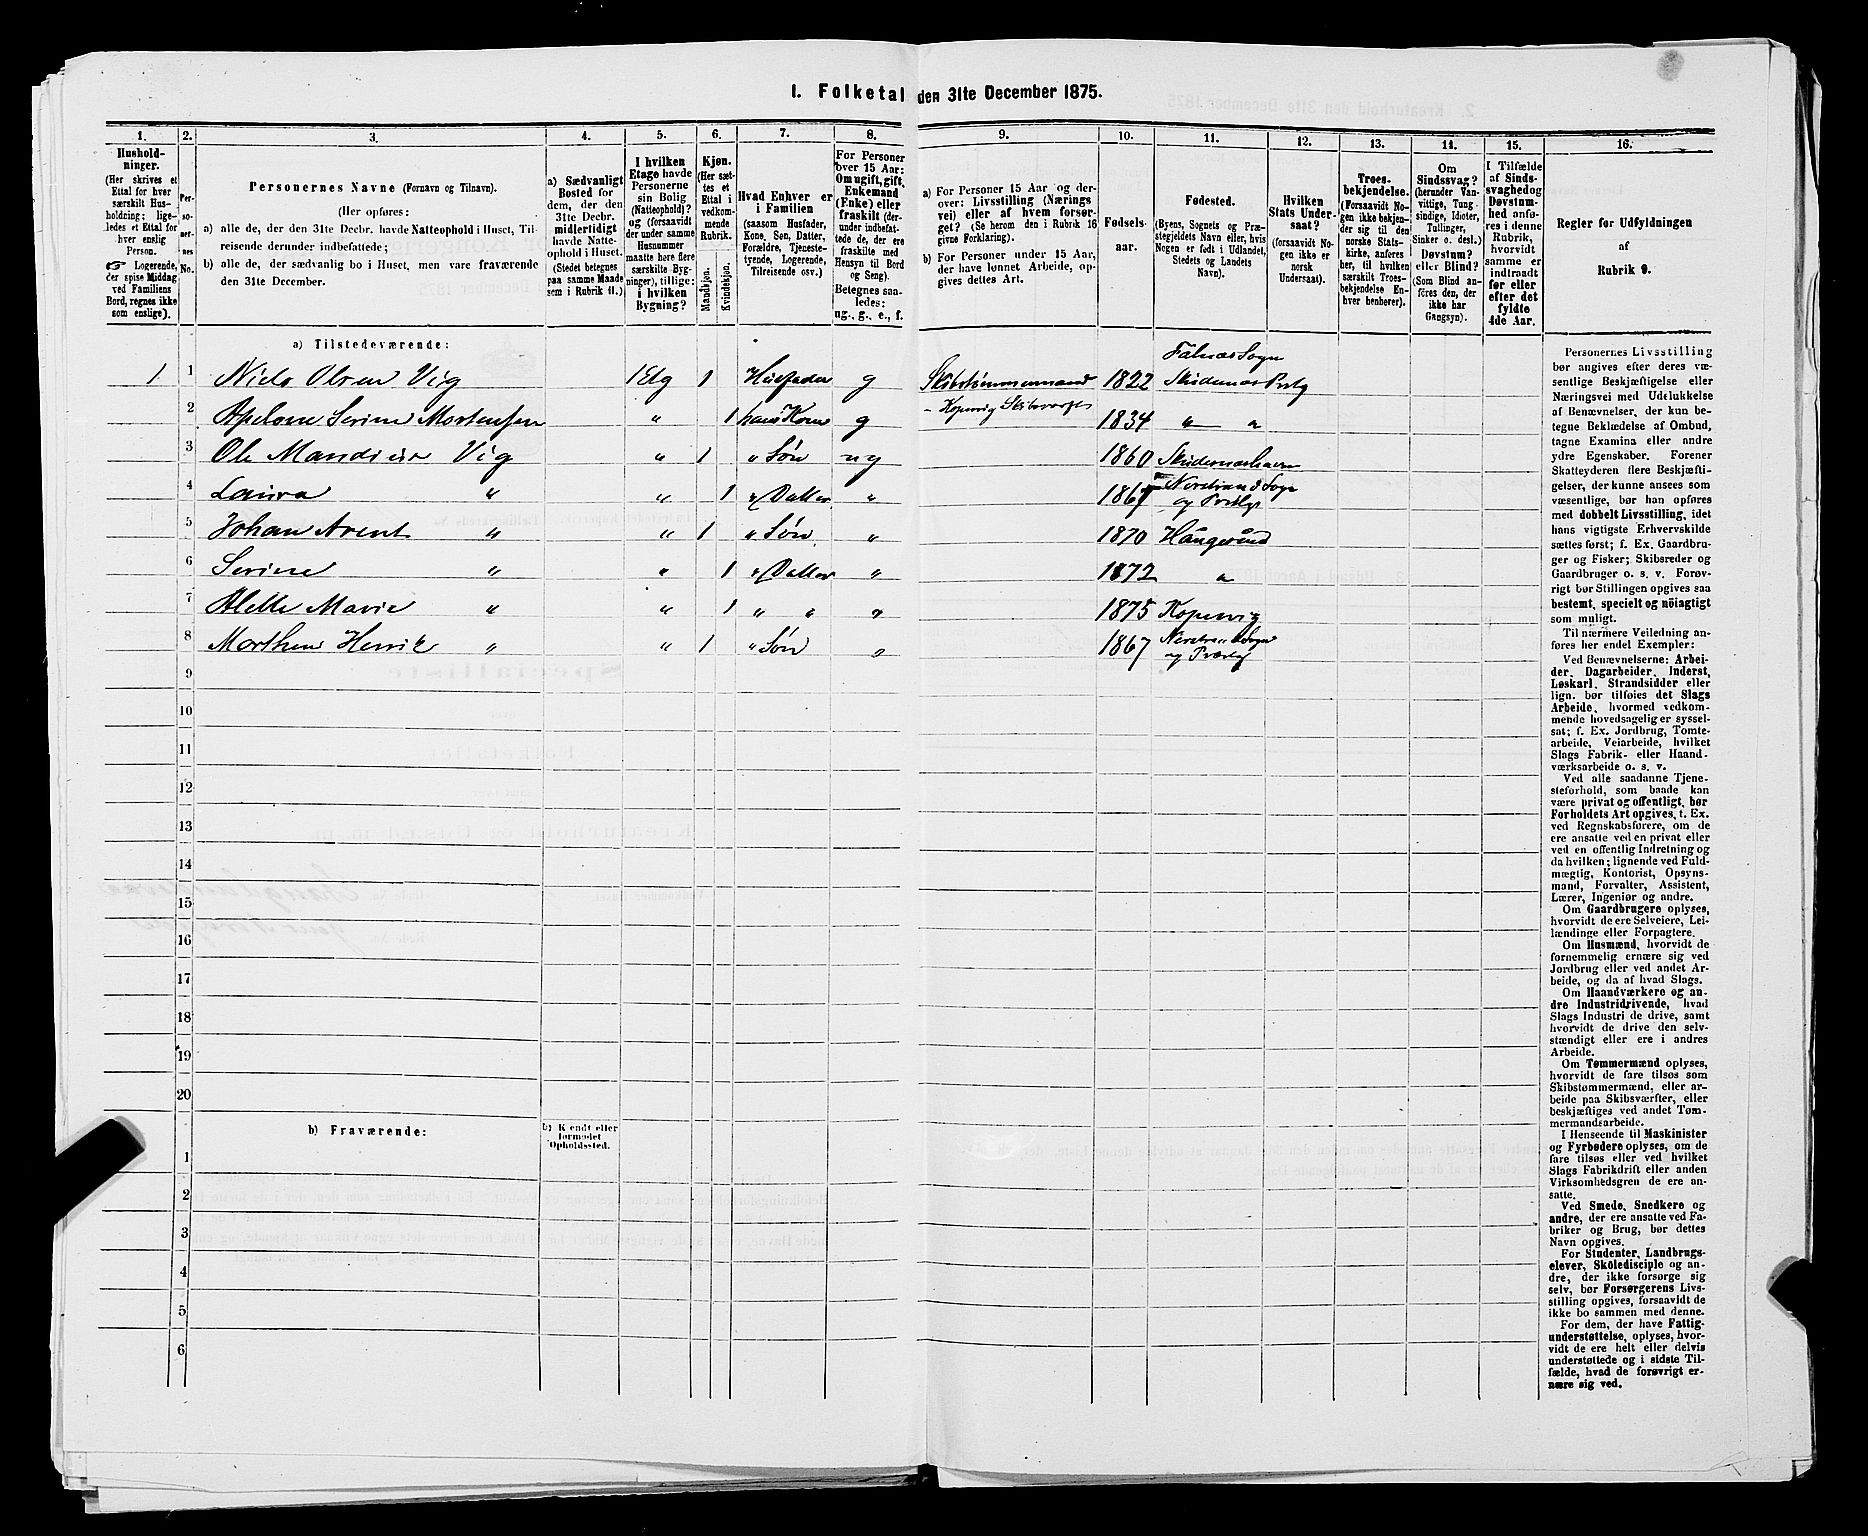 1. Folketal den 31te December 1875.
1. 2. 3. 4. 5. 6. 7. 8. 9. 10. 11. 12. 13. 14. 15. 16.
Hushold-
ninger.
(Her skrives et
Ettal for hver
særskilt Hus-
holdning; lige-
ledes et Ettal for
hver enslig
Person.
☞ Logerende,
der spise Middag
ved Familiens
Bord, regnes ikke
som enslige).
Per-
so-
ner-
nes
No.
Personernes Navne (Fornavn og Tilnavn).
(Her opføres:
a) alle de, der den 31te Decbr. havde Natteophold i Huset, Til-
reisende derunder indbefattede;
b) alle de, der sædvanlig bo i Huset, men vare fraværende
den 31te December.
a) Sædvanligt
Bosted for
dem, der den
31te Decbr.
midlertidigt
havde Natte-
ophold i Huset.
(Stedet betegnes
paa samme Maade
som i Rubrik 11.)
I hvilken
Etage havde
Personerne
sin Bolig
(Natteophold)?
og (forsaavidt
der under samme
Husnummer
maatte høre flere
særskilte Byg-
ninger), tillige:
i hvilken
Bygning?
Kjøn.
(Her sæt-
tes et
Ettal i
vedkom-
mende
Rubrik.
Mandkjøn.
Kvindekjøn.
Hvad Enhver er
i Familien
(saasom Husfader,
Kone, Søn, Datter,
Forældre, Tjeneste-
tyende, Logerende,
Tilreisende osv.)
For Personer
over 15 Aar:
Om ugift, gift,
Enkemand
(Enke) eller
fraskilt (der-
under indbefat-
tede de, der ere
fraskilte med
Hensyn til Bord
og Seng).
Betegnes saa-
ledes:
ug., g., e., f.
a) For Personer 15 Aar og der-
over: Livsstilling (Nærings
vei) eller af hvem forsør-
get? (Se herom den i Rubrik 16
givne Forklaring).
b) For Personer under 15 Aar,
der have lønnet Arbeide, op-
gives dettes Art.
Fødsels-
aar.
Fødested.
(Byens, Sognets og Præ-
stegjeldets Navn eller, hvis
Nogen er født i Udlandet,
Stedets og Landets
Navn).
Hvilken
Stats Under-
saat?
(forsaavidt No-
gen ikke er
norsk
Undersaat).
Troes-
bekjendelse.
(Forsaavidt No-
gen ikke bekjen-
der sig til den
norske Stats-
kirke, anføres
her, til hvilken
særskilt Troes-
bekjendelse En-
hver henhører).
Om
Sindssvag?
(herunder Van-
vittige, Tung-
sindige, Idioter,
Tullinger,
Sinker o. desl.)
Døvstum?
eller Blind?
(Som Blind an-
føres den, der
ikke har
Gangsyn).
I Tilfælde
af Sinds-
svaghed og
Døvstum-
hed anfø-
res i denne
Rubrik,
hvorvidt
samme er
indtraadt
før eller
efter det
fyldte
4de Aar.
Regler for Udfyldningen
af
Rubrik 9.
a) Tilstedeværende:
1 1 Niels Olsen Vig 1 Etg 1 Husfader g Skibstømmermand 1822 Falnæs Sogn Skudenæs Prstg
2 Apelone Serine Mortensen " 1 hans Kone g - Kopervig Skibsværft 1834 " "
3 Ole Mandius Vig " 1 " Søn ug 1860 Skudesnæshavn
4 Laura " " 1 " Datter " Nerstrand Sogn og Prstgj
5 Johan Arent " " 1 " Søn " 1870 Haugesund
6 Serine " " 1 " Datter " 1872 "
7 Alette Marie " " 1 " " " 1875 Kopervig
8 Morthen Henrik " " 1 " Søn " 1867 Nerstrand Sogn og Præstg
9
10
11
12
13
14
15
16
17
18
19
20
b) Fraværende:
b) Kjendt eller
formodet
Opholdssted.
1
2
3
4
5
6
Personernes Livsstilling
bør angives efter deres væ-
sentlige Beskjæftigelse eller
Næringsvei med Udelukkelse
af Benævnelser, der kun be-
tegne Beklædelse af Ombud,
tagne Examina eller andre
ydre Egenskaber. Forener
Skatteyderen flere Beskjæfti-
gelser, der kunne ansees som
væsentlige, bør han opføres
med dobbelt Livsstilling, idet
hans vigtigste Erhvervskilde
sættes først; f. Ex. Gaardbru-
ger og Fisker; Skibsreder og
Gaardbruger o. s. v. Forøv-
rigt bør Stillingen opgives saa
bestemt, specielt og nøiagtigt
som muligt.
Til nærmere Veiledning an-
føres her endel Exempler:
Ved Benævnelserne: Arbei-
der, Dagarbeider, Inderst,
Løskarl, Strandsidder eller
lign. bør tilføies det Slags
Arbeide, hvormed vedkom-
mende hovedsagelig er syssel-
sat; f. Ex. Jordbrug, Tomte-
arbeide, Veiarbeide, hvilket
Slags Fabrik- eller Haand-
værksarbeide o. s. v.
Ved alle saadanne Tjene-
steforhold, som baade kan
være privat og offentligt, bør
Forholdets Art opgives, t. Ex.
ved Regnskabsførere, om de
ere ansatte ved en privat eller
ved en offentlig Indretning og
da hvilken; lignende ved Fuld-
mægtig, Kontorist, Opsyns-
mand, Forvalter, Assistent,
Lærer, Ingeniør og andre.
Om Gaardbrugere oplyses,
hvorvidt de ere Selveiere, Lei-
lændinge eller Forpagtere.
Om Husmænd, hvorvidt de
fornemmelig ernære sig ved
Jordbrug eller ved andet Ar-
beide, og da af hvad Slags.
Om Haandværkere og an-
dre Industridrivende, hvad
Slags Industri de drive, samt
hvorvidt de drive den selv-
stændigt eller ere i andres
Arbeide.
Om Tømmermænd oplyses,
hvorvidt de fare tilsøs som
Skibstømmermænd, eller ar-
beide paa Skibsværfter, eller
beskjæftiges ved andet Tøm-
mermandsarbeide.
I Henseende til Maskinister
og Fyrbødere oplyses, om de
fare tilsøs eller ved hvilket
Slags Fabrikdrift eller anden
Virksomhedsgren de ere an-
satte.
Ved Smede, Snedkere og
andre, der ere ansatte ved Fa-
briker og Brug, bør dettes
Navn opgives.
For Studenter, Landbrugs-
elever, Skoledisciple og an-
dre, der ikke forsørge sig
selv, bør Forsørgerens Livs-
stilling opgives, forsaavidt de
ikke bo sammen med denne.
For dem, der have Fattig-
understøttelse, oplyses, hvor-
vidt de ere helt eller delvis
understøttede og i sidste Til-
fælde, hvad de forøvrigt er-
nære sig ved.